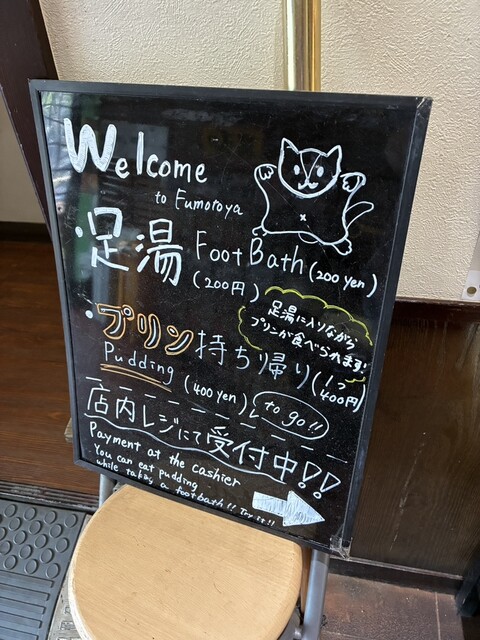 Welcome
to Fumoroya
足湯 Foot Bath (200 yen)
(200円)
足湯に入りながら
プリンが食べられます!
・プリン持ち帰り(1つ400円)
Pudding (400 yen) to go!!
店内レジにて受付中!!
Payment at the cashier
You can eat pudding
while taking a footbath!! Try it!!